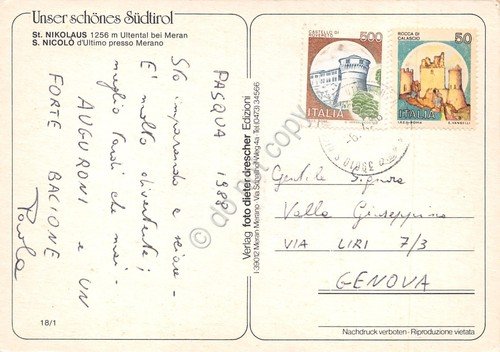 Unser schönes Südtirol
St. NIKOLAUS 1256 m Ultental bei Meran
S. NICOLÒ d'Ultimo presso Merano
PASQUA 1988
Sto imparando a sciare.
E' molto divertente;
meglio tardi che mai.
AUGURONI e UN
FORTE BACIONE
Paola
18/1
Verlag foto dieter drescher Edizioni
I-39012 Meran Merano Via Schaffer Weg 4a Tel. (0473) 34566
CASTELLO DI
ROVERETO
500
ITALIA
ROCCA DI
CALASCIO
50
ITALIA
I.P.Z.S. ROMA E. VANGELLI
Gentile Signora
Valle Giuseppina
VIA LIRI 7/3
GENOVA
Nachdruck verboten - Riproduzione vietata